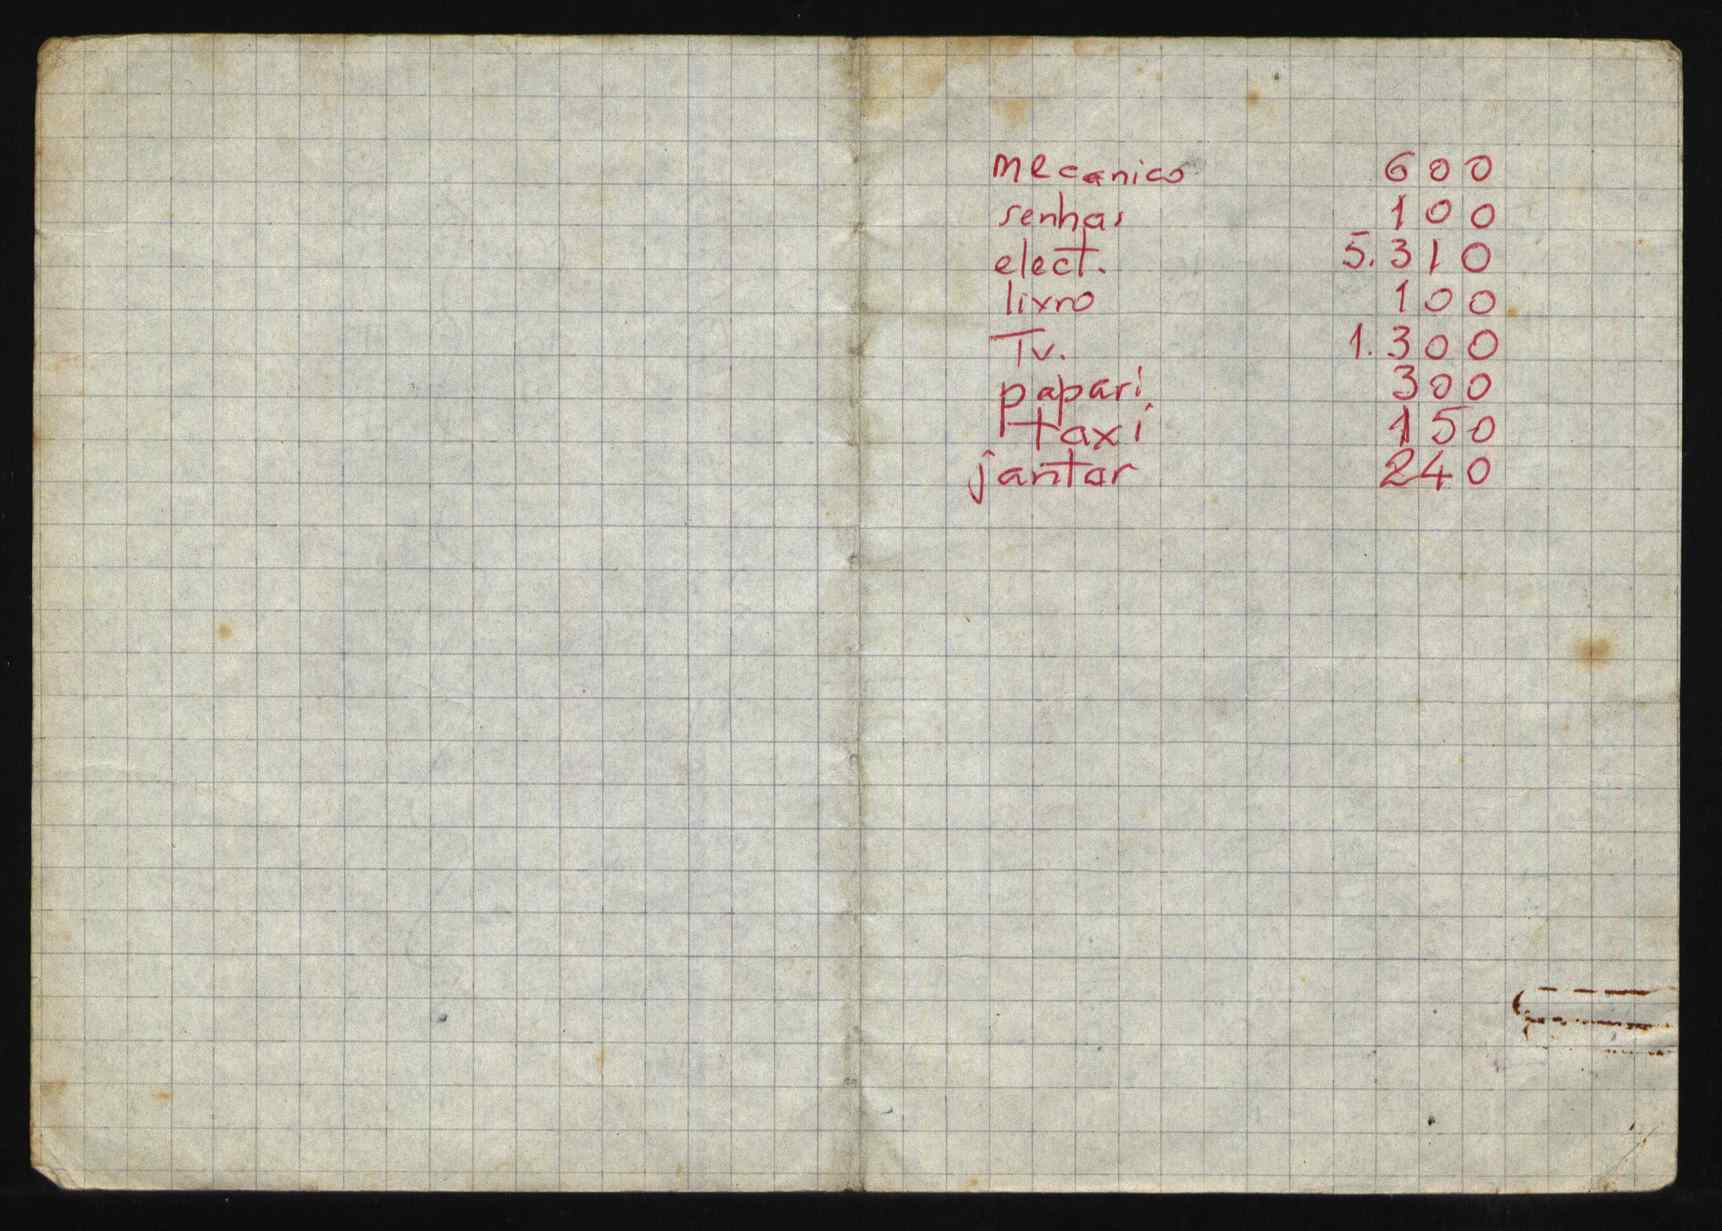 mecanico 600
senhas 100
elect. 5.310
lixro 100
Tv. 1.300
papari 300
taxi 150
jantar 240